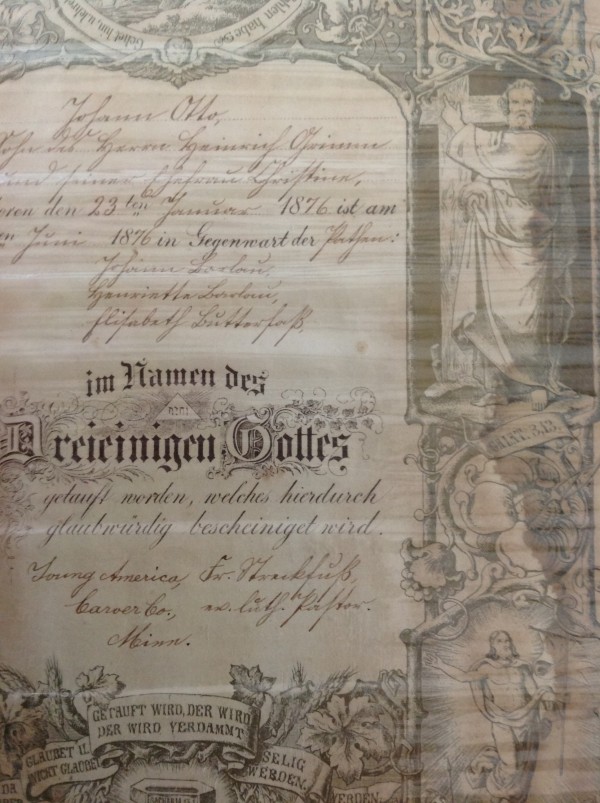 Gehet hin u. lehret
Johann Otto,
Sohn des Herrn Heinrich Grimm
und seiner Ehefrau Christine,
oren den 23ten Januar 1876 ist am
Juni 1876 in Gegenwart der Pathen:
Johann Barlau,
Henriette Barlau,
Elisabeth Butterfaß,
im Namen des
Dreieinigen Gottes
getauft worden, welches hierdurch
glaubwürdig bescheiniget wird.
Young America, Fr. Streckfuß,
Carver Co., ev. luth. Pastor.
Minn.
GETAUFT WIRD, DER WIRD
DER WIRD VERDAMMT
GLAUBET U.
NICHT GLAUBE
SELIG
WERDEN.
DA
WERDEN.